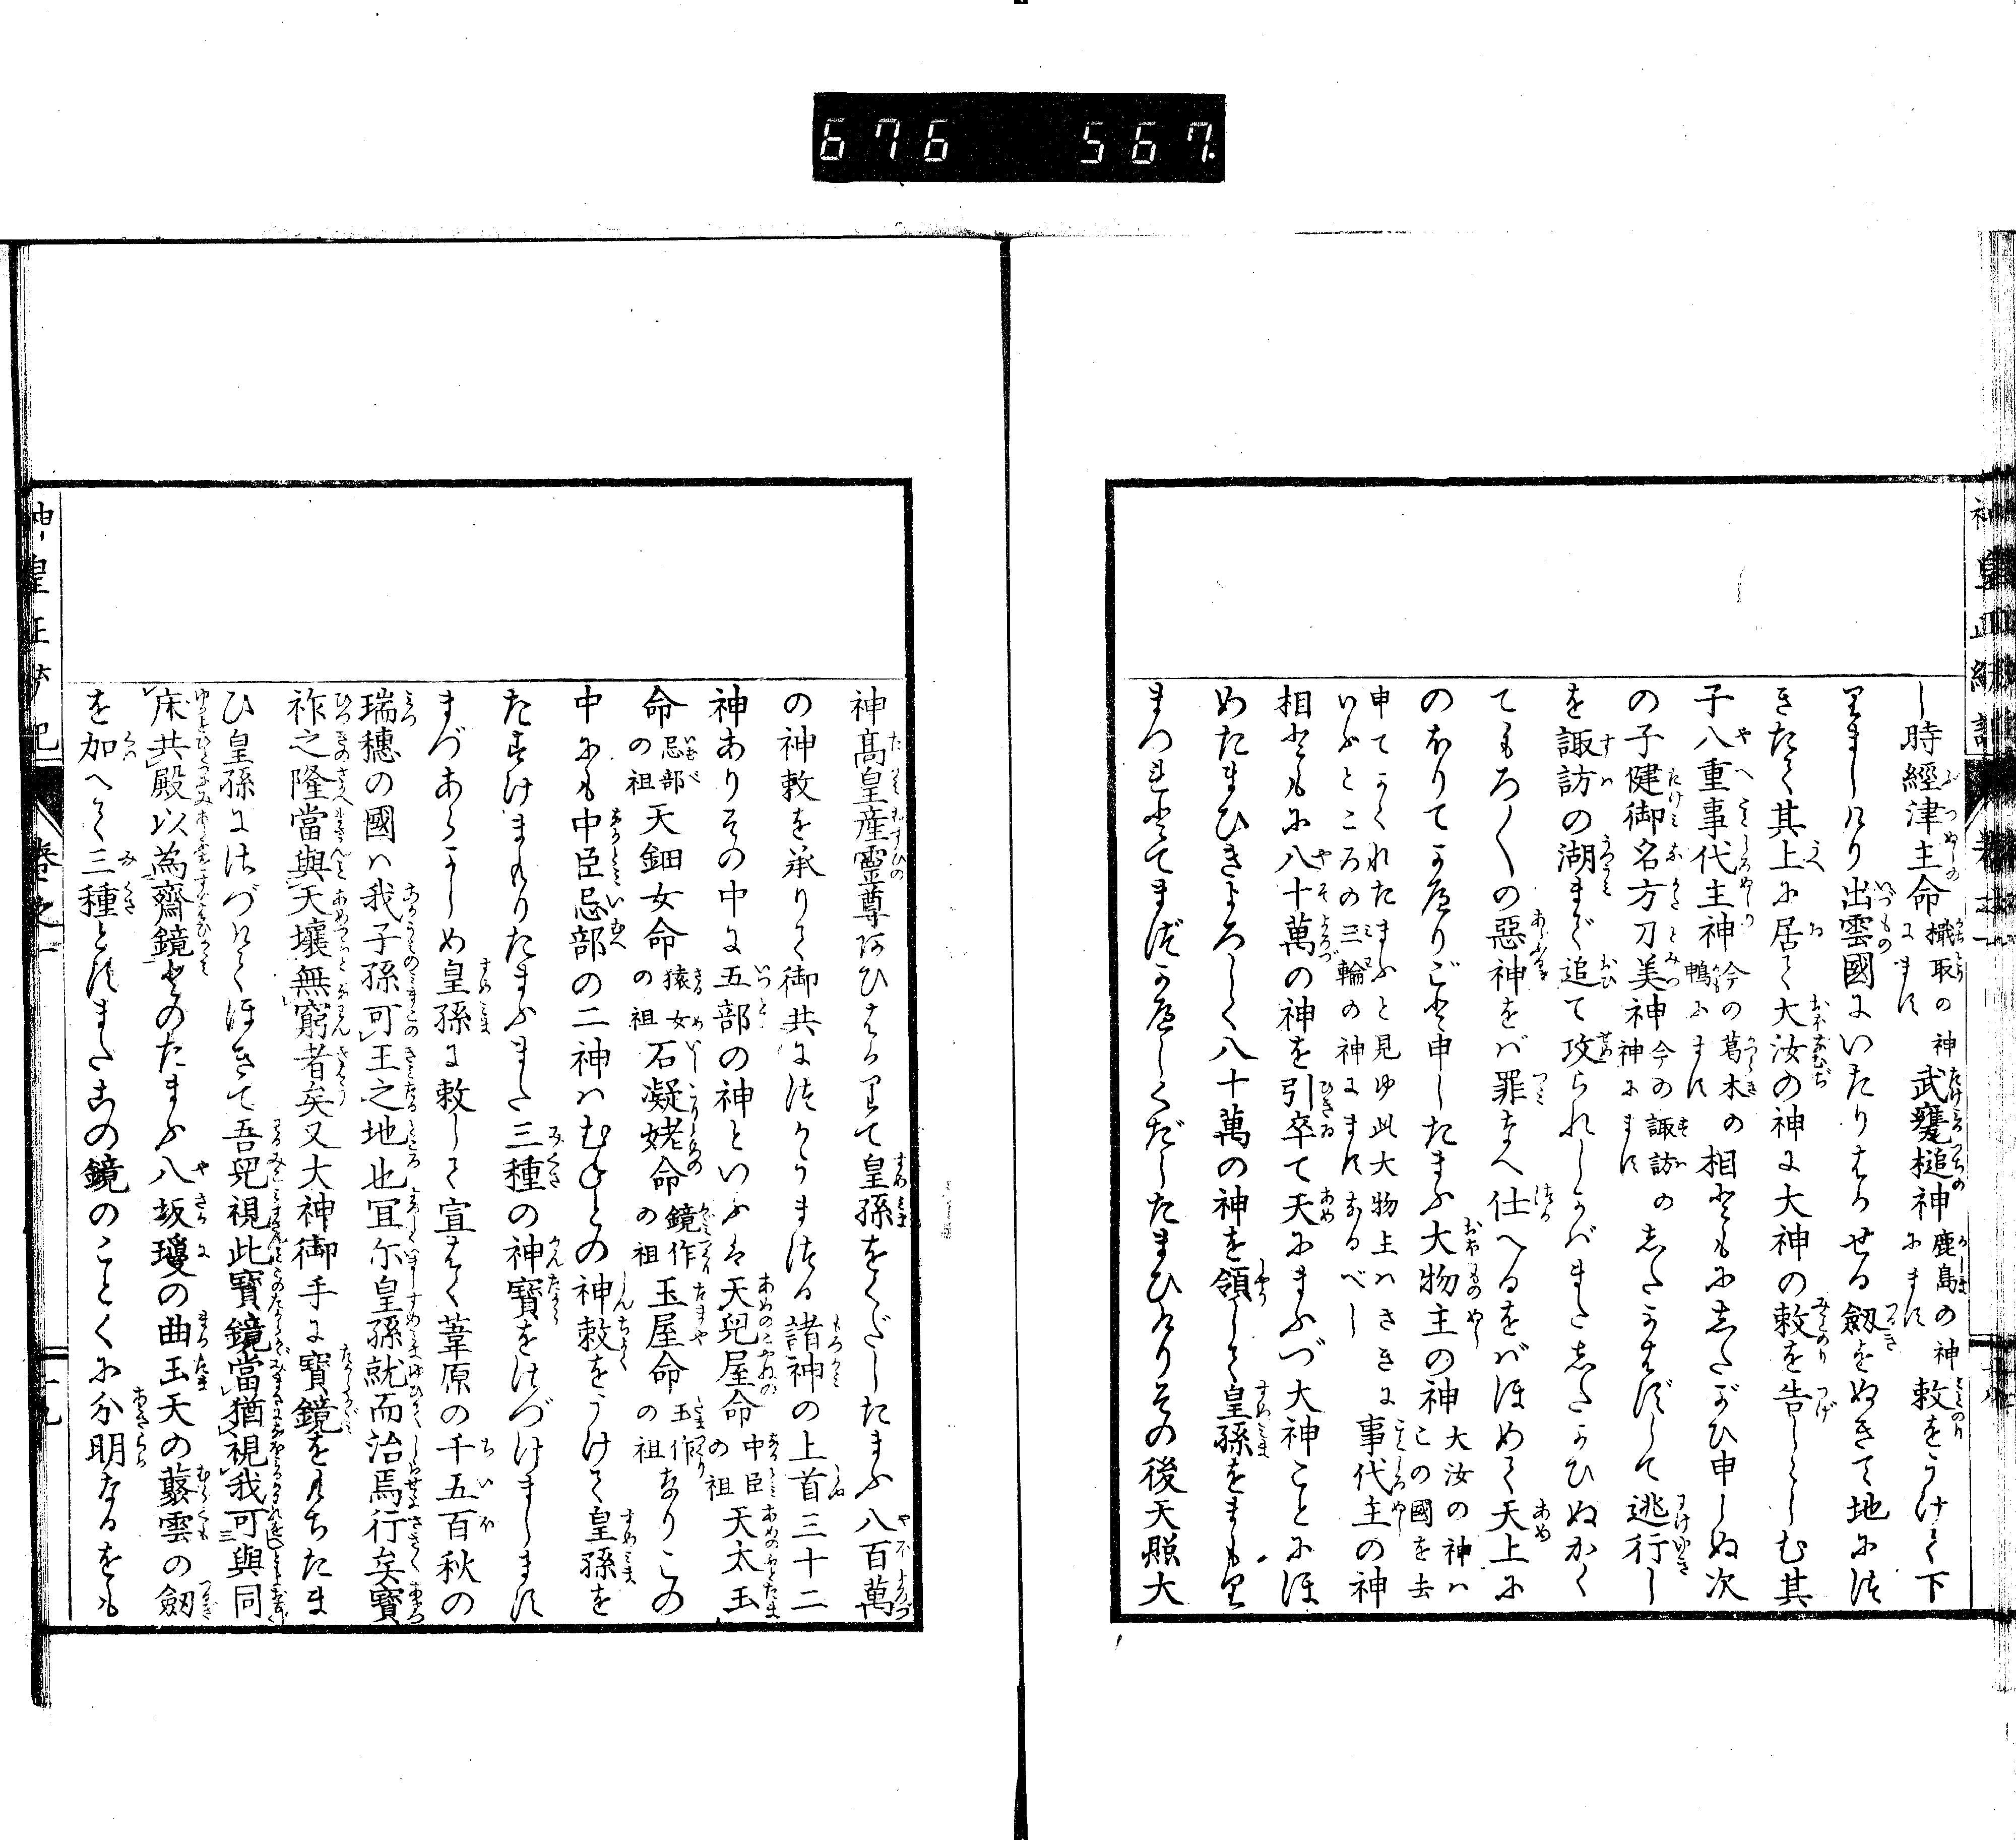 676 567.
し時經津主命檝取の神にます武甕槌神鹿島の神にます敕をうけて下
りましけり出雲國にいたりはかせる劔をぬきて地につ
きたて其上に居て大汝の神に大神の敕を告しらしむ其
子八重事代主神今の葛木の鴨にます相ともにしたがひ申しぬ次
の子健御名方刀美神今の諏訪の神にますしたがはずして逃行し
を諏訪の湖まで追て攻られしかばまたしたがひぬかく
てもろ〱の惡神をば罪なへ仕へるをばほめて天上に
のぼりてかへりごと申したまふ大物主の神大汝の神ハこの國を去
申てかくれたまふと見ゆ此大物主ハさきにいふところの三輪の神にますなるべし事代主の神
相ともに八十萬の神を引卒て天にまふづ大神ことにほ
めたまひきよろしく八十萬の神を領して皇孫をまもり
まつれとてまづかへしくだしたまひけりその後天照大
神髙皇産靈尊はひはからひて皇孫をくだしたまふ八百萬
の神敕を承りて御共につかうまつる諸神の上首三十二
神ありその中に五部の神といふは天兒屋命中臣の祖天太玉
命忌部の祖天鈿女命猿女の祖石凝姥命鏡作の祖玉屋命玉作の祖なりこの
中にも中臣忌部の二神ハむねとの神敕をうけて皇孫を
たすけまもりたまふまた三種の神寶をさづけまします
まづあらかじめ皇孫に敕して宣はく葦原の千五百秋の
瑞穗の國ハ我子孫可王之地也冝尓皇孫就而治焉行矣寳
祚之隆當與天壤無窮者矣又大神御手に寶鏡をもちたま
ひ皇孫にさづけてほきて吾兒視此寶鏡當猶視我可與同
床共殿以為齋鏡とのたまふ八坂瓊の曲玉天の藂雲の劔
を加へて三種とすまたこの鏡のことくに分明なるをも
神皇正統記
卷之一
十九